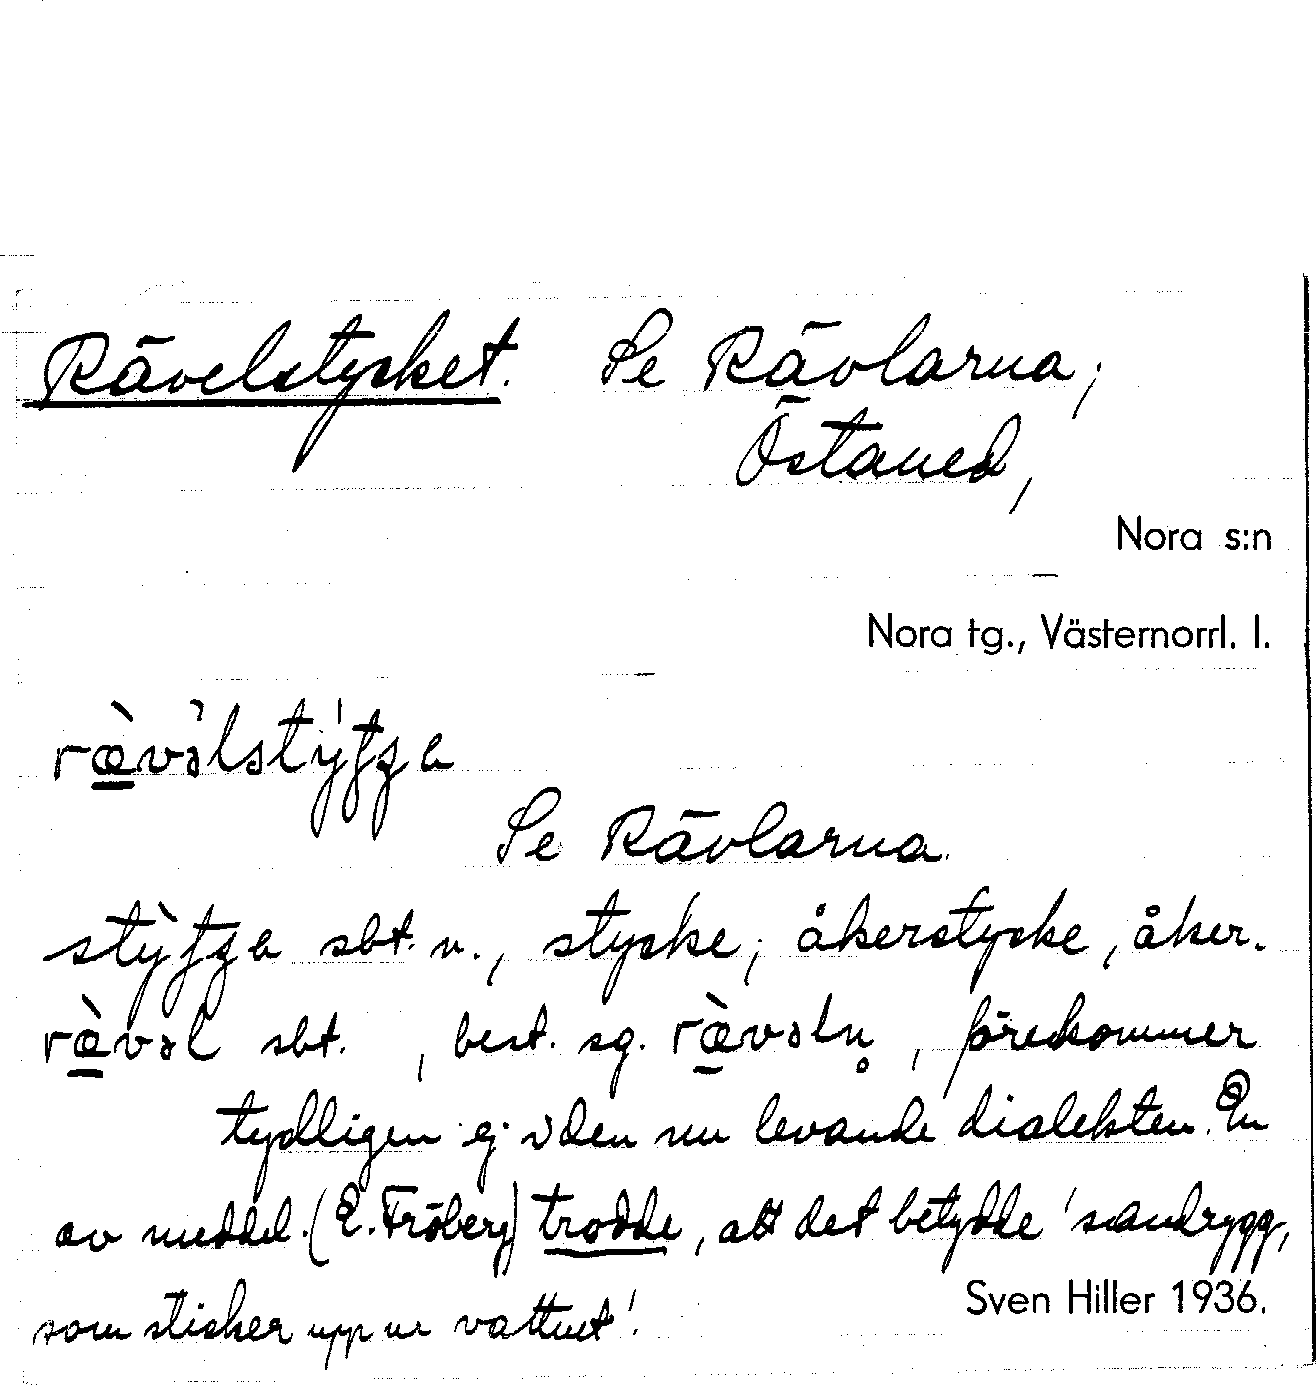 Rävelstycket. Se Rävlarna,
Östaned,
Nora s:n
Nora tg., Västernorrl. l.
ræ̀vəlstýʃʒa
Se Rävlarna.
stỳʃʒa sbt. n., stycke; åkerstycke, åker.
ræ̀vəl sbt. , best. sg. ræ̀vəln̥ , förekommer
tydligen ej i den nu levande dialekten. En
av meddel. (E. Fröberg) trodde, att det betydde 'sandrygg,
som sticker upp ur vattnet'.
Sven Hiller 1936.